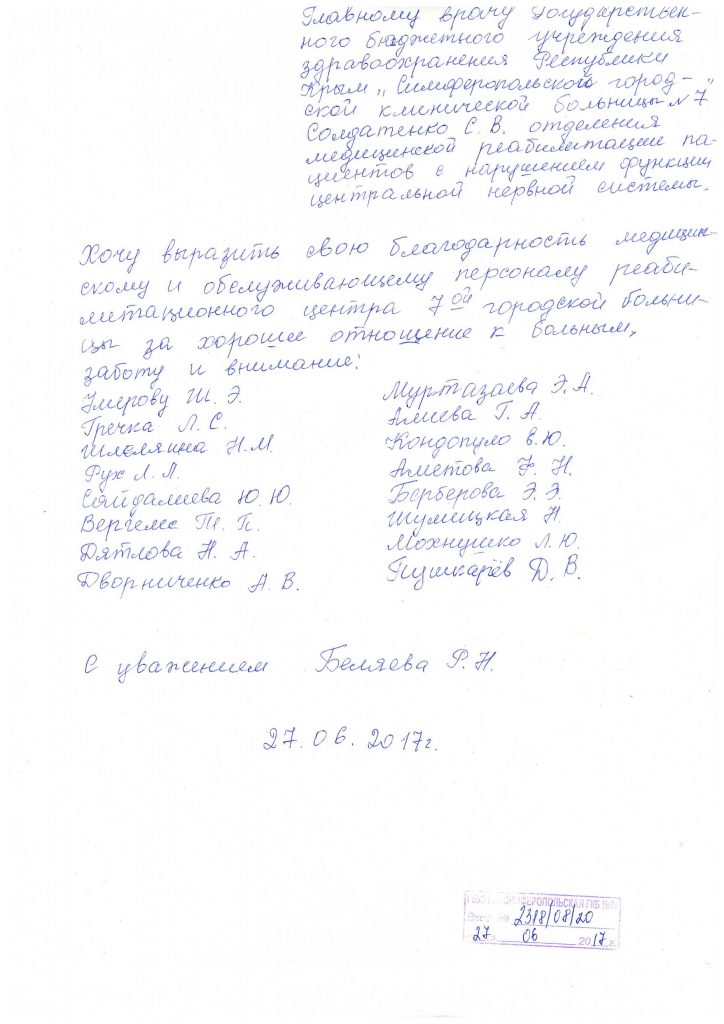 Главному врачу Государствен-
ного бюджетного учреждения
здравоохранения Республики
Крым „Симферопольской город-
ской клинической больницы N 7"
Солдатенко С. В. отделения
медицинской реабилитации па-
циентов с нарушением функции
центральной нервной системы.
Хочу выразить свою благодарность медицин-
скому и обслуживающему персоналу реаби-
литационного центра 7ой городской больни-
цы за хорошее отношение к больным,
заботу и внимание:
Умерову Ш. Э.
Гречка Л. С.
Н.М.
Рух Л. Л.
Сейдалиева Ю. Ю.
Вергелес Т. П.
Дятлова Н. А.
Дворниченко А. В.
Муртазаева Э. А.
Алиева Г. А.
Кондопуло В. Ю.
Аметова Н.
Берберова Э. Э.
Шумицкая Н.
Мохнушко Л. Ю.
Пушкарёв Д. В.
С уважением Беляева Р. Н.
27. 06. 2017г.
СИМФЕРОПОЛЬСКАЯ ГКБ №7
Вход. № 2318/08/20
27 06 2017 г.